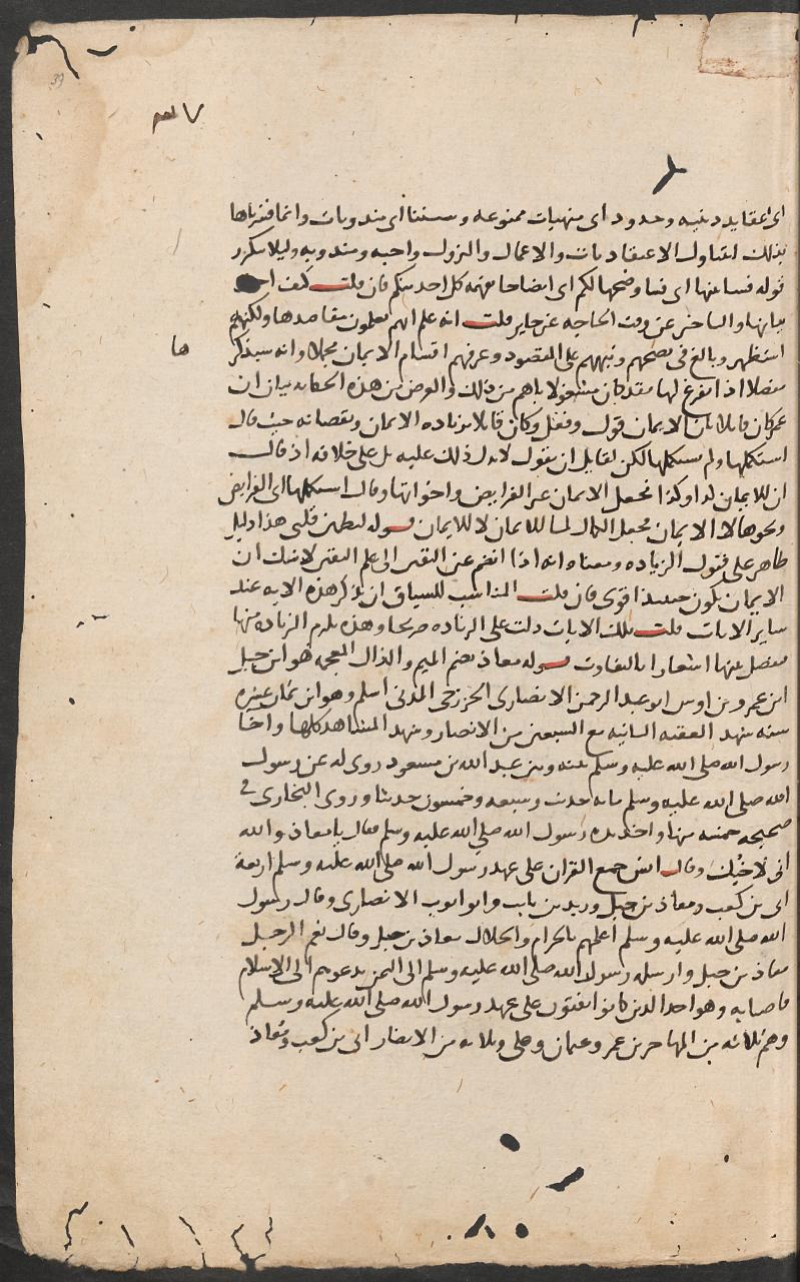 39
اى اعقايد دينيه وحدود اى منهيات ممنوعه وسننا اى مندوبات وانما فسرناها
بذلك لتناول الاعتقاديات والاعمال والتروك واجبه ومندوبه وليلا يتكرر
قوله فسابينها اى فساوضحها لكم اى ايضاحا يفهمه كل احد منكم فان قلت كيف اخر
بيانها والتاخير عن وقت الحاجه غير جايز قلت انه علم انهم يعلمون مقاصدها ولكنهم
استظهر وبالغ فى نصحهم ونبههم على المقصود وعرفهم اقسام الايمان مجملا وانه سيذكر ها
مفصلا اذا تفرغ لها فقد كان مشغولا باهم من ذلك والغرض من هذه الحكايه بيان ان
عمر كان قايلا بان الايمان قول وفعل وكان قايلا بزياده الايمان ونقصانه حيث قال
استكملها ولم يستكملها لكن لقايل ان يقول لا يدل ذلك عليه بل على خلافه اذ قال
ان للايمان كذا وكذا فجعل الايمان غير الفرايض واخواتها وقال استكملها اى الفرايض
ونحوها لا الايمان فجعل الكمال لما للايمان لا للايمان قوله ليطمئن قلبى هذا دليل
ظاهر على قبول الزياده ومعناه انه اذا انضم عين اليقين الى علم اليقين لا شك ان
الايمان يكون حينئذ اقوى فان قلت المناسب للسياق ان يذكر هذه الايه عند
ساير الايات قلت تلك الايات دلت على الزياده صريحا وهذه يلزم الزياده منها
ففصل بينها اشعارا بالتفاوت قوله معاذ بضم الميم والذال المعجمه هو ابن جبل
ابن عمرو بن اوس ابو عبد الرحمن الانصارى الخزرجى المدنى اسلم وهو ابن ثمان عشره
سنه شهد العقبه الثانيه مع السبعين من الانصار وشهد المشاهد كلها واخا
رسول الله صلى الله عليه وسلم بينه وبين عبد الله بن مسعود روى له عن رسول
الله صلى الله عليه وسلم مايه حديث وسبعه وخمسون حديثا وروى البخارى فى
صحيحه خمسه منها واخذ بيده رسول الله صلى الله عليه وسلم فقال يا معاذ والله
انى لاحبك وقال انس جمع القران على عهد رسول الله صلى الله عليه وسلم اربعة
ابى بن كعب ومعاذ بن جبل وزيد بن ثابت وابو ايوب الانصارى وقال رسول
الله صلى الله عليه وسلم اعلمهم بالحرام والحلال معاذ بن جبل وقال نعم الرجل
معاذ بن جبل وارسله رسول الله صلى الله عليه وسلم الى اليمن يدعوهم الى الاسلام
قاضيا به وهو احد الذين كانوا يفتون على عهد رسول الله صلى الله عليه وسلم
وهم ثلاثه من المهاجرين عمر وعثمان وعلى وثلاثه من الانصار ابى بن كعب ومعاذ